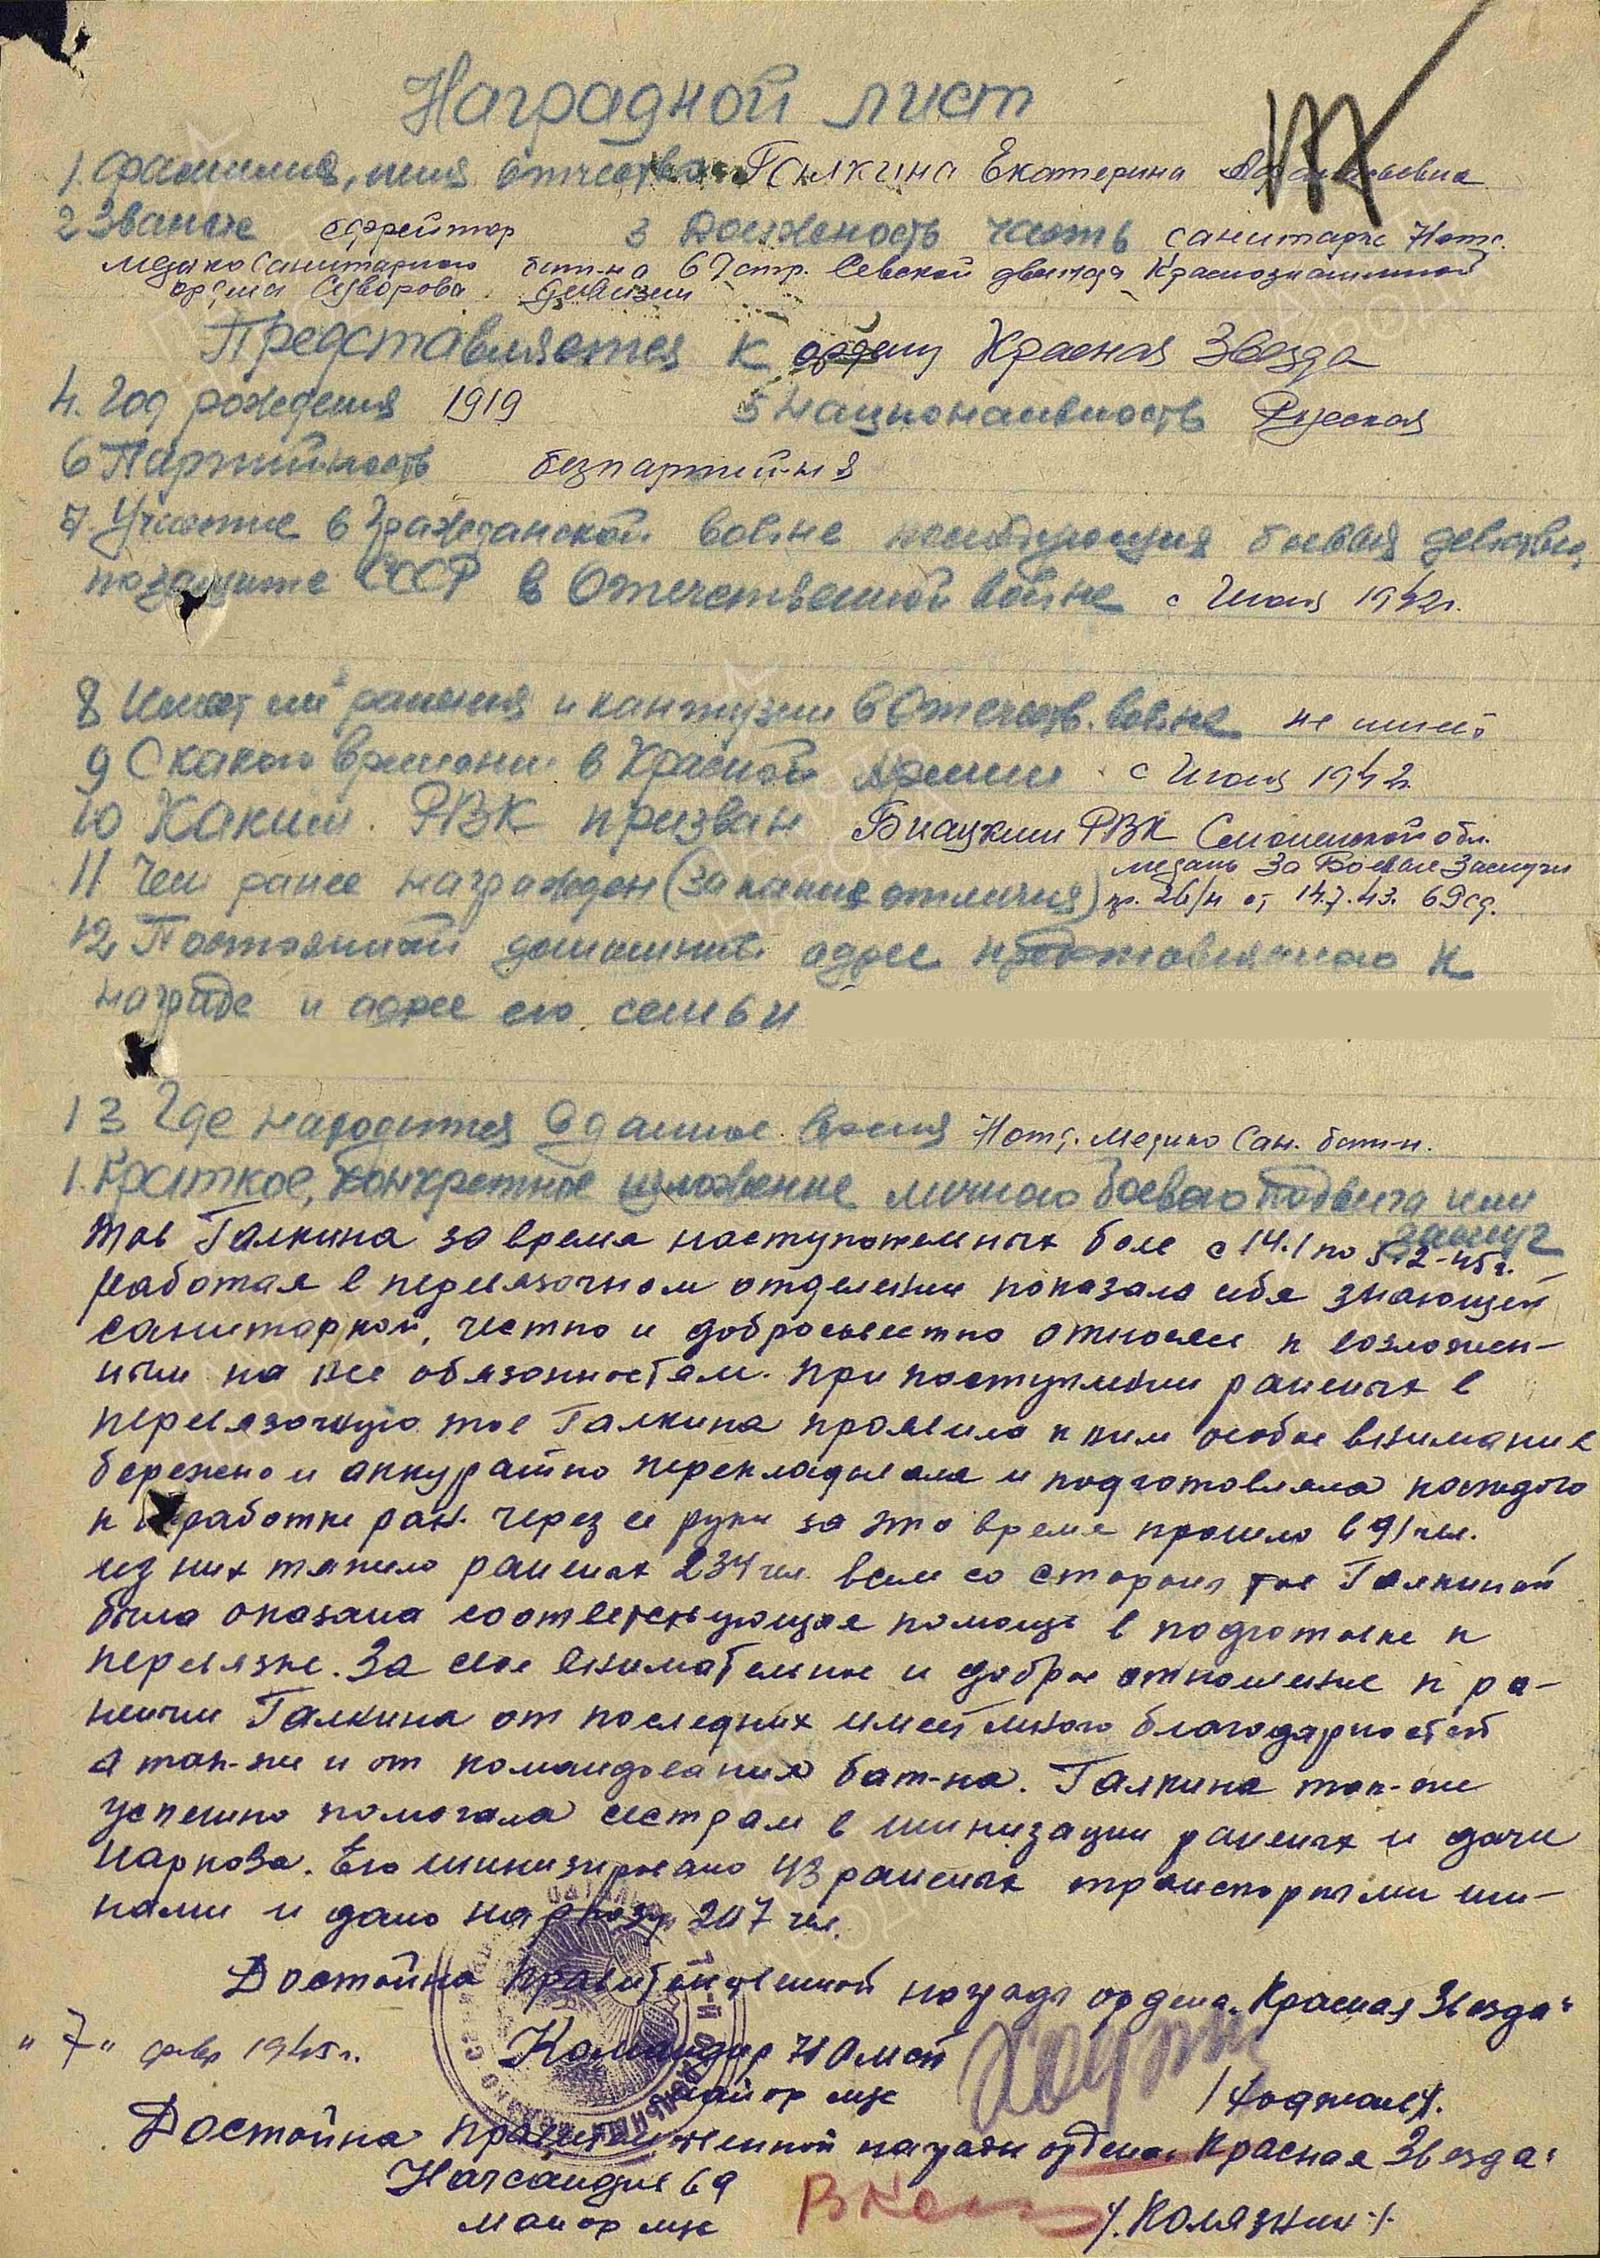 Наградной лист
1. Фамилия, имя отчество Галкина Екатерина Афанасьевна
2 Звание ефрейтор 3 Должность часть санитарка 71 отд.
медико санитарного бат-на 69 стр. Севской дважды Краснознаменной
ордена Суворова дивизии
Представляется к ордену Красная Звезда
4. Год рождения 1919 5 Национальность Русская
6 Партийность безпартийная
7. Участие в Гражданской войне последующих боевых действ.
по защите СССР в Отечественной войне с Июля 1942г.
8 Имеет ли ранения и кантузии в Отечеств. войне не имеет
9 С какого времени в Красной Армии с Июля 1942г.
10 Каким РВК призван РВК Смоленской обл.
11. Чем ранее награжден (за какие отличия) медаль За Боевые Заслуги
пр. 26/н от 14.7.43. 69 сд.
12. Постоянный домашний адрес представляемого к
награде и адрес его семьи
13 Где находится в данное время 71 отд. Медико Сан. бат-н.
1. Краткое, конкретное изложение личного боевого подвига или
заслуг
тов Галкина за время наступательных боев с 14.1 по 5-2-45г.
работая в перевязочном отделении показала себя знающей
санитаркой, честно и добросовестно относясь к возложен-
ным на нее обязанностям. При поступлении раненых в
перевязочную тов Галкина проявила к ним особое внимание
бережно и аккуратно перекладывала и подготовляла каждого
к обработке ран. Через ее руки за это время прошло 691 чел.
из них тяжело раненых 234 чел. всем со стороны тов Галкиной
была оказана соответствующая помощь в подготовке к
перевязке. За свое внимательное и доброе отношение к ра-
неным Галкина от последних имеет много благодарностей
а так-же и от командования бат-на. Галкина так-же
успешно помогала сестрам в шинизации раненых и дачи
наркоза. Ею шинизировано 43 раненых транспортными ши-
нами и дано наркозу 207 чел.
Достойна правительственной награды ордена "Красная Звезда"
"7" февр 1945г. Командир 71 Омсб
майор м/с
Достойна правительственной награды ордена "Красная Звезда"
Начсандив 69
майор м/с /Колязкин/